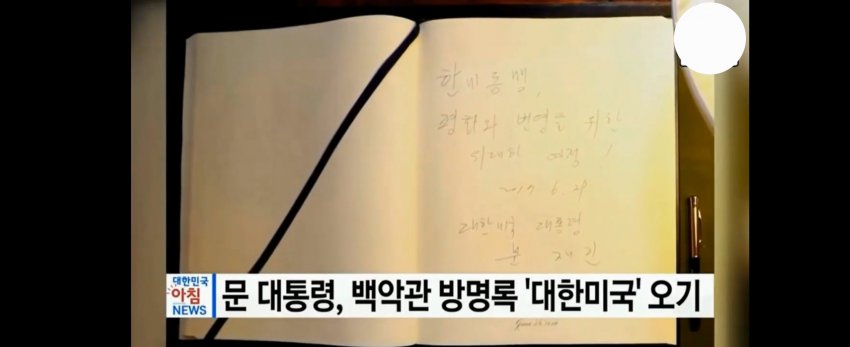 한미동맹,
평화와 번영을 위한
위대한 여정!
2017. 6. 29
대한미국 대통령
문재인
대한민국
아침
NEWS
문 대통령, 백악관 방명록 '대한미국' 오기